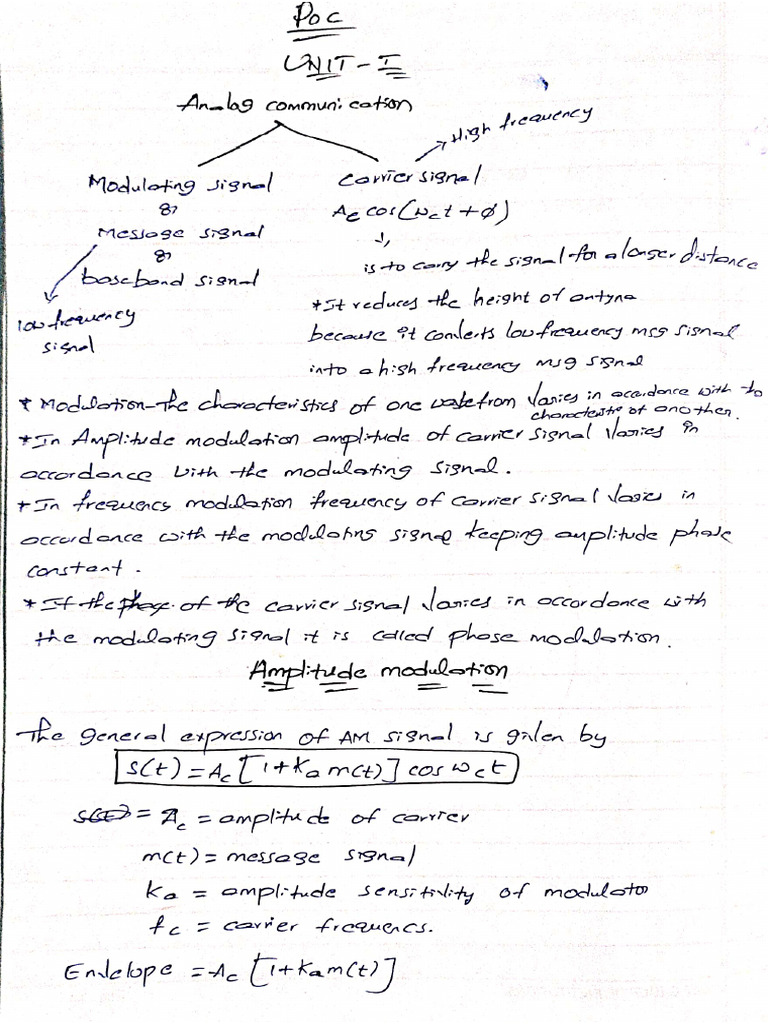 POC
UNIT-I
Analog communication
High frequency
Modulating signal
or
Message signal
or
baseband signal
low frequency
signal
carrier signal
Ac cos(ωct+ϕ)
is to carry the signal for a longer distance
*It reduces the height of antyna
because it converts low frequency msg signal
into a high frequency msg signal
* Modulation-The characteristics of one wavefrom varies in accordance with to
characteristic of another.
*In Amplitude modulation amplitude of carrier signal varies in
accordance with the modulating signal.
*In frequency modulation frequency of carrier signal varies in
accordance with the modulating signal keeping amplitude phase
constant.
*If the phase of the carrier signal varies in accordance with
the modulating signal it is called phase modulation.
Amplitude modulation
The general expression of AM signal is given by
s(t) = Ac [1+Ka m(t)] cos ωct
s(t) = Ac = amplitude of carrier
m(t) = message signal
ka = amplitude sensitivity of modulator
fc = carrier frequency.
Envelope = Ac [1+Kam(t)]